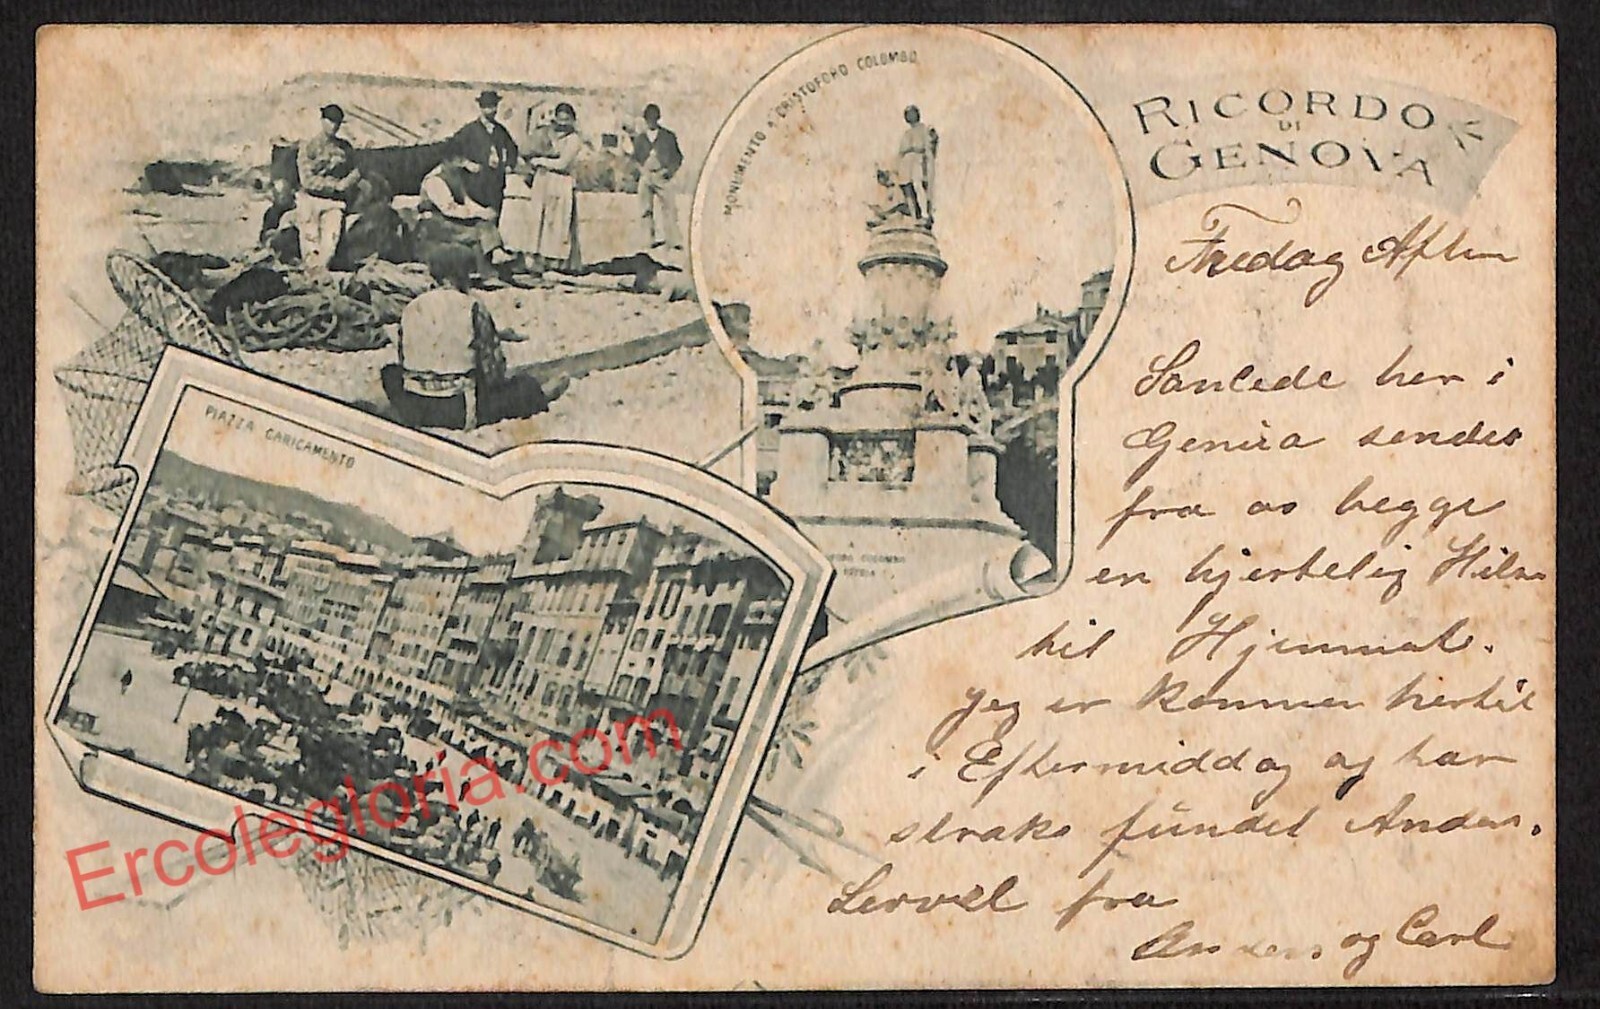 MONUMENTO A CRISTOFORO COLOMBO
RICORDO
DI
GENOVA
Fredag Aften
Samlede her i
Genua sendes
fra os begge
en hjertelig Hilsen
til Hjemmet.
Jeg er kommen hertil
i Eftermiddag og har
straks fundet Anders.
Levvel fra
Anders og Carl
PIAZZA CARICAMENTO
A
COLOMBO
Ercolegloria.com